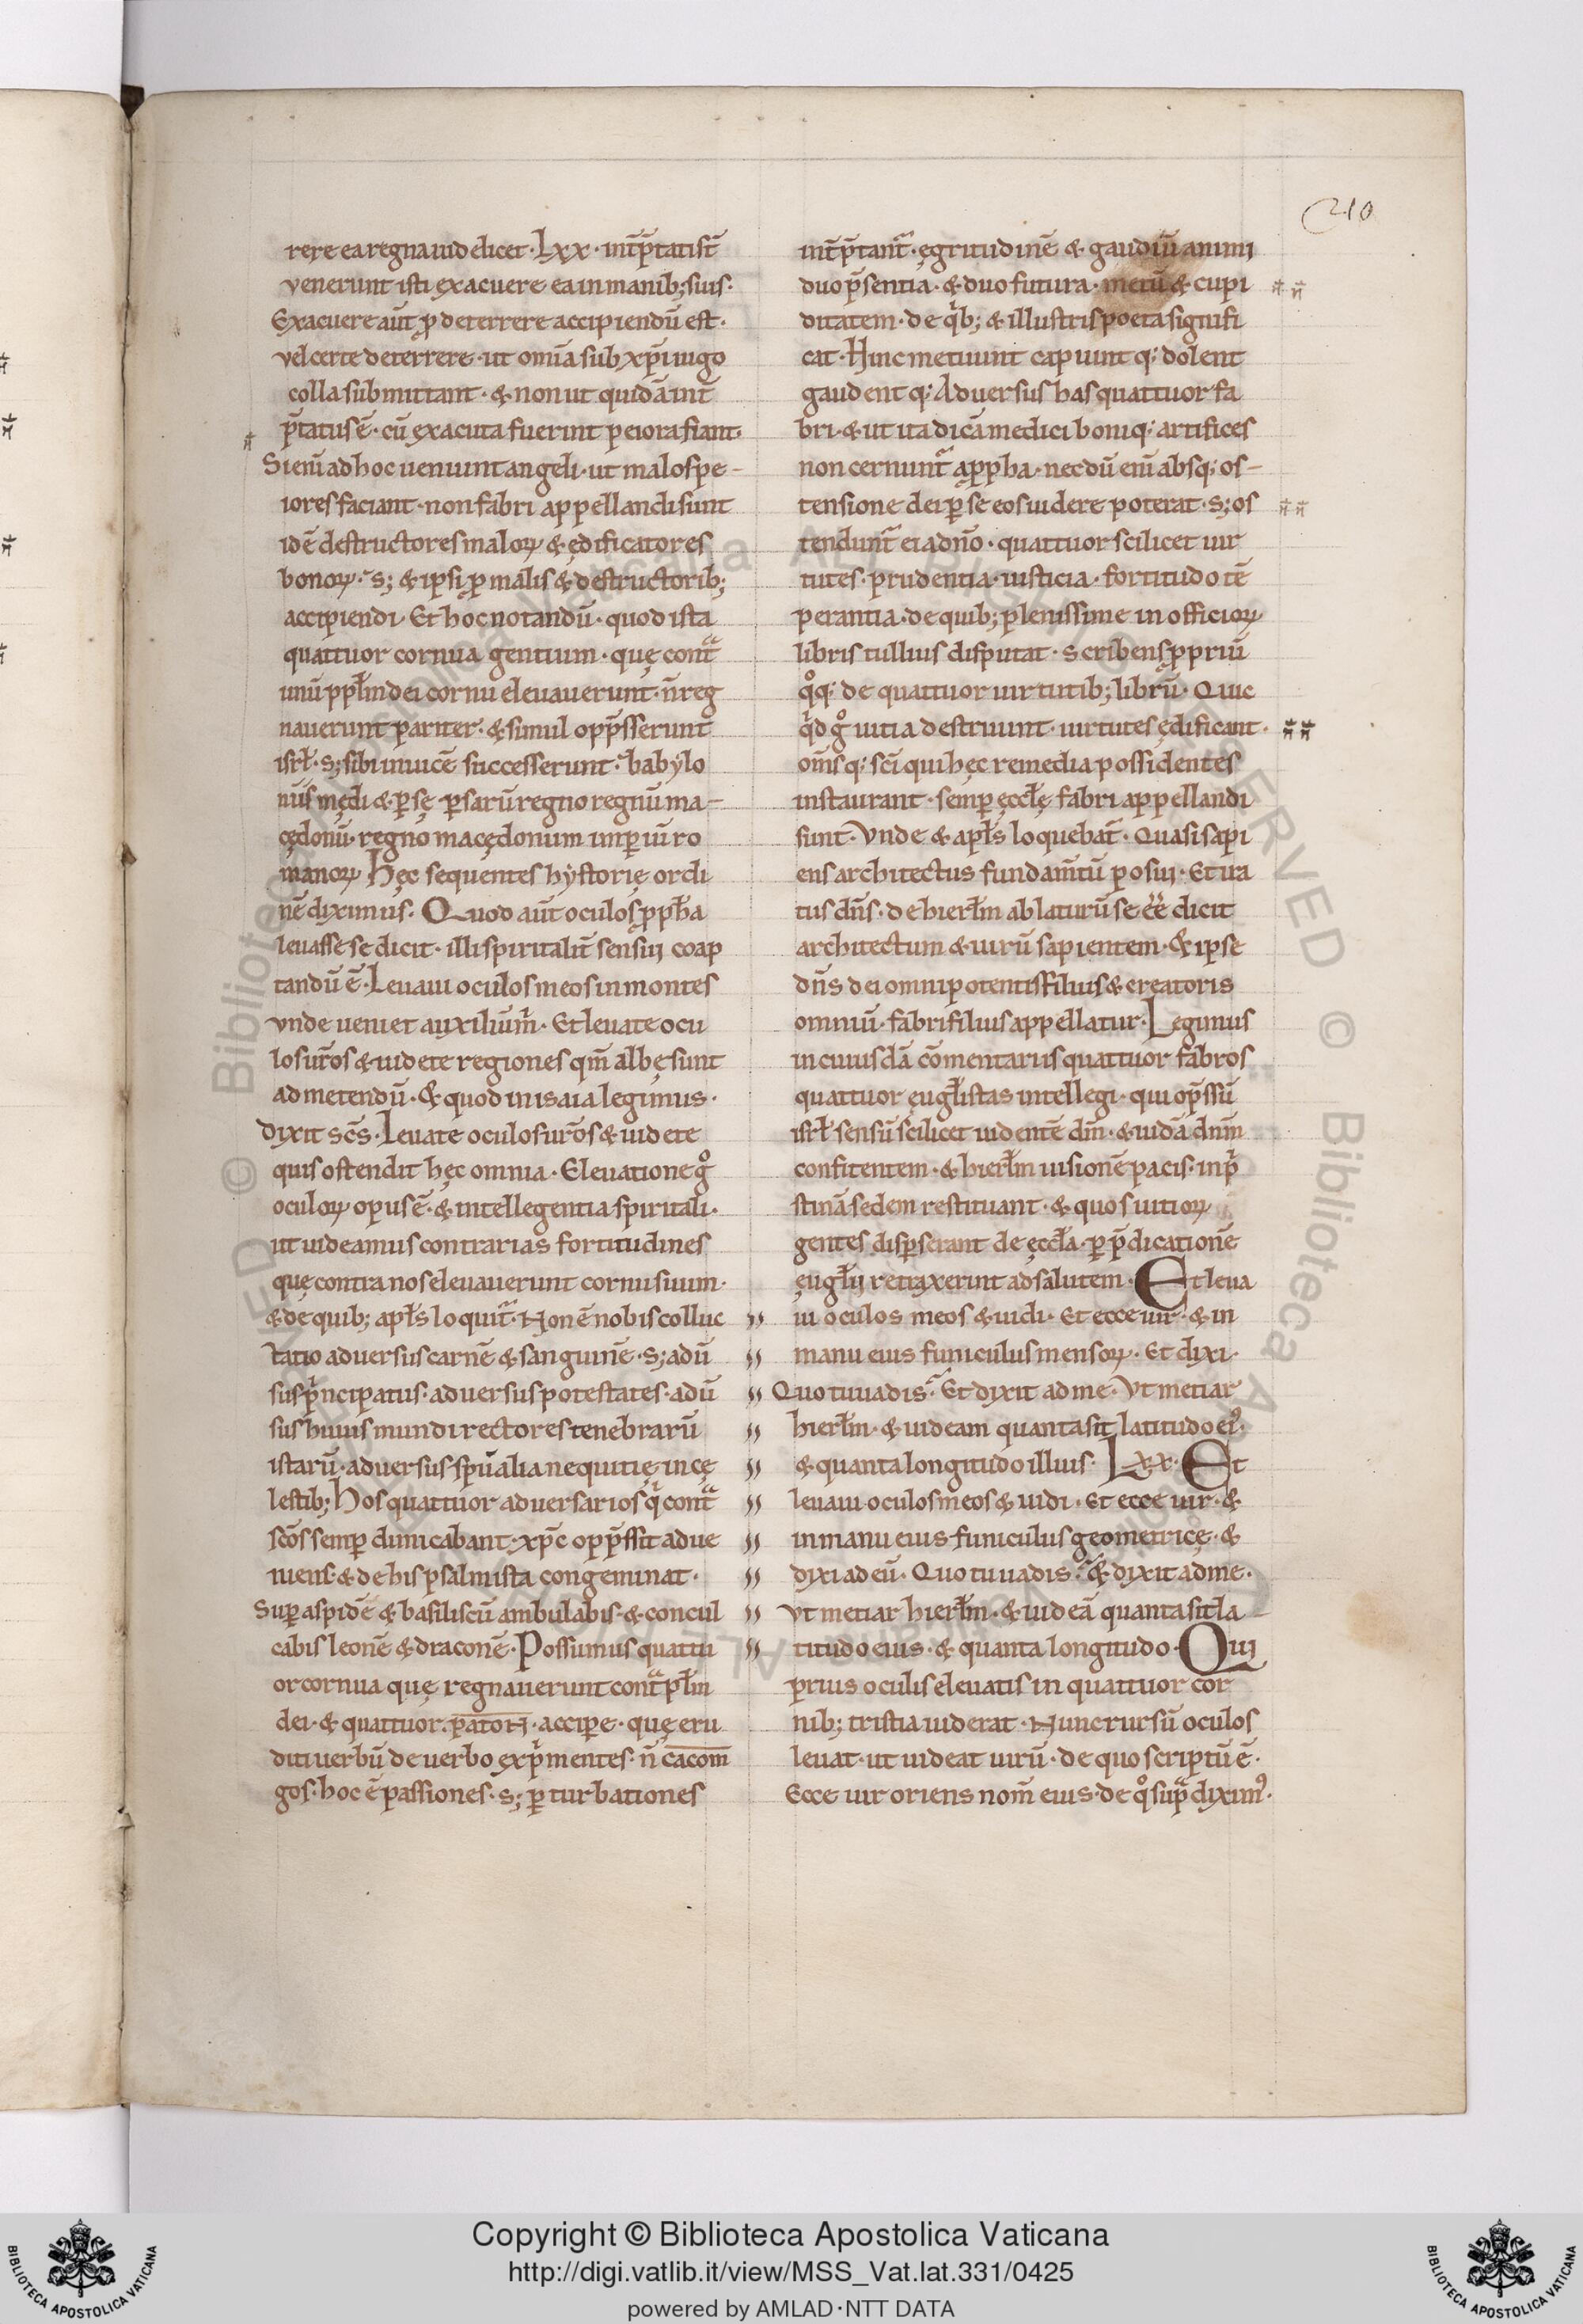 210
rere ea regna uidelicet· Lxx· int̄p̄tatist̄
venerunt isti exacuere ea in manib; suis·
Exacuere aūt p̱ deterrere accipiendū est·
vel certe deterrere· ut om̄ia sub xp̄i iugo
colla submittant· & non ut quidā int̄
p̄tatus ē· cū exacuta fuerint peiora fiant·
Si eni̅ ad hoc ueniunt angeli· ut malos pe-
iores faciant· non fabri appellandi sunt
idē destructores maloꝝ & ędificatores
bonoꝝ· s; & ipsi ꝓ malis & destructorib;
accipiendi· Et hoc notandū· quod ista
quattuor cornua gentium· quę cont̄ͣ
unū pp̄lm dei cornu eleuauerunt· n̄ reg
nauerunt pariter· & simul opp̄sserunt
isrł· s; sibi inuicē successerunt· babylo
niis mędi & ꝑsę· ꝑsarū regno regnū ma-
cędonū· regno macędonum imꝑiū ro
manoꝝ Hęc sequentes hystorię ordi
nē diximus· Quod aūt oculos ꝓpħa
leuasse se dicit· illi spiritalit̄ sensui coap
tandū ē· Leuaui oculos meos in montes
vnde ueniet auxiliū m̄· Et leuate ocu
los ur̄os & uidete regiones qm̄ albę sunt
ad metendū· & quod in isaia legimus·
dixit sc̄s· Leuate oculos ur̄os & uidete
quis ostendit hęc omnia· Eleuatione gͦ
oculoꝝ opus ē· & intellegentia spiritali·
ut uideamus contrarias fortitudines
quę contra nos eleuauerunt cornu suum·
& de quib; apłs loquit̄· Non ē nobis colluc
tatio aduersus carnē & sanguinē· s; adū
sus pͥncipatus· aduersus potestates· adū
sus huius mundi rectores tenebrarū
istarū· aduersus sp̄ualia nequitię in cę
lestib; Hos quattuor aduersarios qͥ cont̄ͣ
sc̄os semꝑ dimicabant· xp̄c opp̄ssit adue
niens· & de his psalmista congeminat·
Suꝑ aspidē & basiliscū ambulabis· & concul
cabis leonē & draconē· Possumus quattu
or cornua quę regnauerunt cont̄ͣ płm
dei· & quattuor· accipe· quę eru
diti uerbū de uerbo expͥmentes· n̄ cacom̄
gos· hoc ē passiones· s; ꝑturbationes
int̄p̄tant̄· ęgritudinē & gaudiū animi
duo p̄sentia· & duo futura· metū & cupi
ditatem· de qͥb; & illustris poeta signifi
cat· Hinc metuunt capiunt q; dolent
gaudent q; Aduersus has quattuor fa
bri· & ut ita dicā medici boni q; artifices
non cernunt̄ a ꝓpha· necdū eni̅ absq; os-
tensione dei ꝑ se eos uidere poterat· s; os
tendunt̄ ei a dn̄o· quattuor scilicet uir
tutes· prudentia· iusticia· fortitudo tē
perantia· de quib; plenissime in officioꝝ
libris tullius disputat· scribens ꝓpriū
qͦq; de quattuor uirtutib; librū· Quic
qͥd gͦ uitia destruunt· uirtutes ędificant·
om̄s q; sc̄i qui hęc remedia possidentes
instaurant· semꝑ ęccłę fabri appellandi
sunt· Vnde & apłs loquebat̄· Quasi sapi
ens architectus fundam̄tū posui· Et ira
tus dn̄s· de hierłm ablaturū se ēē dicit
architectum & uirū sapientem· & ipse
dn̄s dei omnipotentis filius & creatoris
omniū· fabri filius appellatur· Legimus
in cuiusdā cōmentariis quattuor fabros
quattuor ęugłistas intellegi· qui op̄ssū
isrł· sensū scilicet uidentē dm̄· & iudā dnm̄
confitentem· & hierłm uisionē pacis· in pͥ
stinā sedem restituant· & quos uitioꝝ
gentes disꝑserant de ęccła· ꝑ p̄dicationē
ęugłii retraxerint ad salutem· Et leua
ui oculos meos & uidi· Et ecce uir· & in
manu eius funiculus mensoꝝ· Et dixi·
Quo tu uadis? Et dixit ad me· Vt metiar
hierłm· & uideam quanta sit latitudo ei⁹·
& quanta longitudo illius· Lxx· Et
leuaui oculos meos & uidi· Et ecce uir· &
in manu eius funiculus geometricę· &
dixi ad eū· Quo tu uadis? & dixit ad me·
Vt metiar hierłm· & uideā quanta sit la-
titudo eius· & quanta longitudo· Qui
prius oculis eleuatis in quattuor cor
nib; tristia uiderat· Nunc rursū oculos
leuat· ut uideat uirū· de quo scriptū ē·
Ecce uir oriens nom̄ eius· de qͦ supͣ dixim⁹·
Copyright © Biblioteca Apostolica Vaticana
http://digi.vatlib.it/view/MSS_Vat.lat.331/0425
powered by AMLAD·NTT DATA
BIBLIOTECA APOSTOLICA VATICANA
BIBLIOTECA APOSTOLICA VATICANA